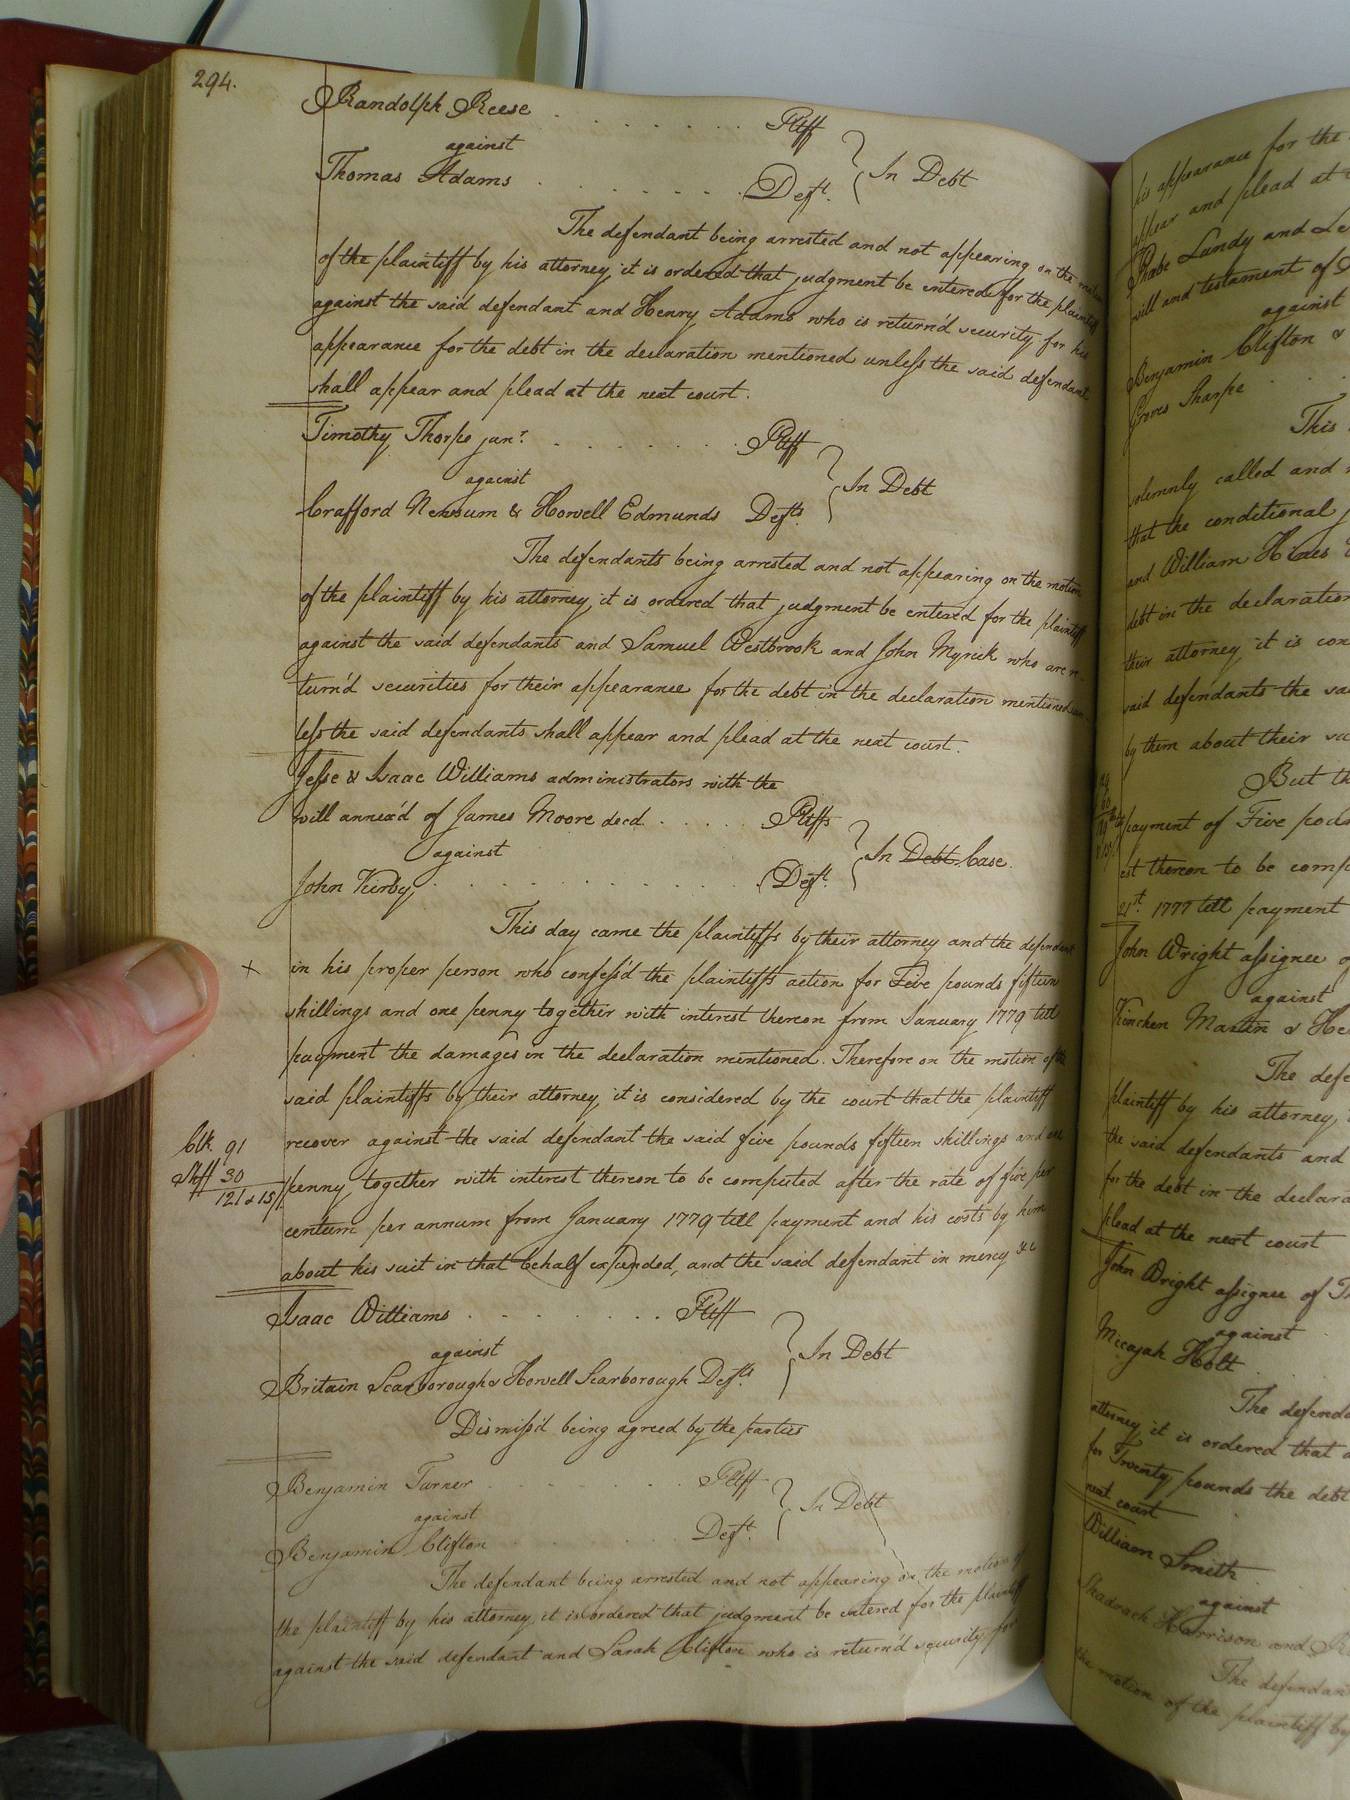 294.
Randolph Reese . . . . . . . Pltff
against
Thomas Adams . . . . . . . Deft. } In Debt
The defendant being arrested and not appearing on the motion
of the plaintiff by his attorney, it is ordered that judgment be entered for the plaintiff
against the said defendant and Henry Adams who is return'd security for his
appearance for the debt in the declaration mentioned unless the said defendant
shall appear and plead at the next court.
Timothy Thorpe junr. . . . . . . . Pltff
against } In Debt
Crafford Newsum & Howell Edmunds Defts.
The defendants being arrested and not appearing on the motion
of the plaintiff by his attorney, it is ordered that judgment be entered for the plaintiff
against the said defendants and Samuel Westbrook and John Myrick who are re-
turn'd securities for their appearance for the debt in the declaration mentioned un-
less the said defendants shall appear and plead at the next court.
Jesse & Isaac Williams administrators with the
will annex'd of James Moore decd . . . . . Pltffs
against } In Debt Case.
John Kirby . . . . . . . . . . Deft.
This day came the plaintiffs by their attorney and the defendant
x in his proper person who confess'd the plaintiffs action for Five pounds fifteen
shillings and one penny together with interest thereon from January 1779 till
payment the damages in the declaration mentioned. Therefore on the motion of the
said plaintiffs by their attorney, it is considered by the court that the plaintiff
Clk. 91 recover against the said defendant the said five pounds fifteen shillings and one
Shff 30 penny, together with interest thereon to be computed after the rate of five per
121 & 15/ centum per annum from January 1779 till payment and his costs by him
about his suit in that behalf expended, and the said defendant in mercy &c
Isaac Williams . . . . . . . . Pltff
against } In Debt
Britain Scarborough & Howell Scarborough Defts.
Dismiss'd being agreed by the parties
Benjamin Turner . . . . . . . Pltff
against } In Debt
Benjamin Clifton Deft.
The defendant being arrested and not appearing on the motion of
the plaintiff by his attorney, it is ordered that judgment be entered for the plaintiff
against the said defendant and Sarah Clifton who is return'd security for
his appearance for the
appear and plead at
Phabe Lundy and
will and testament of
against
Benjamin Clifton &
Groves Sharpe
This
solemnly called and
that the conditional
and William Hines
debt in the declaration
their attorney it is con
said defendants the sa
by them about their
But th
payment of Five pou
est thereon to be comp
21st. 1777 till payment
John Wright assignee of
against
Kinchen Martin & He
The defe
plaintiff by his attorney,
the said defendants and
for the debt in the declara
plead at the next court
John Wright assignee of
against
Micajah Holt
The defenda
attorney, it is ordered that
for Twenty pounds the debt
next court
William Smith
against
Shadrach Harrison and
The defendan
the motion of the plaintiff by